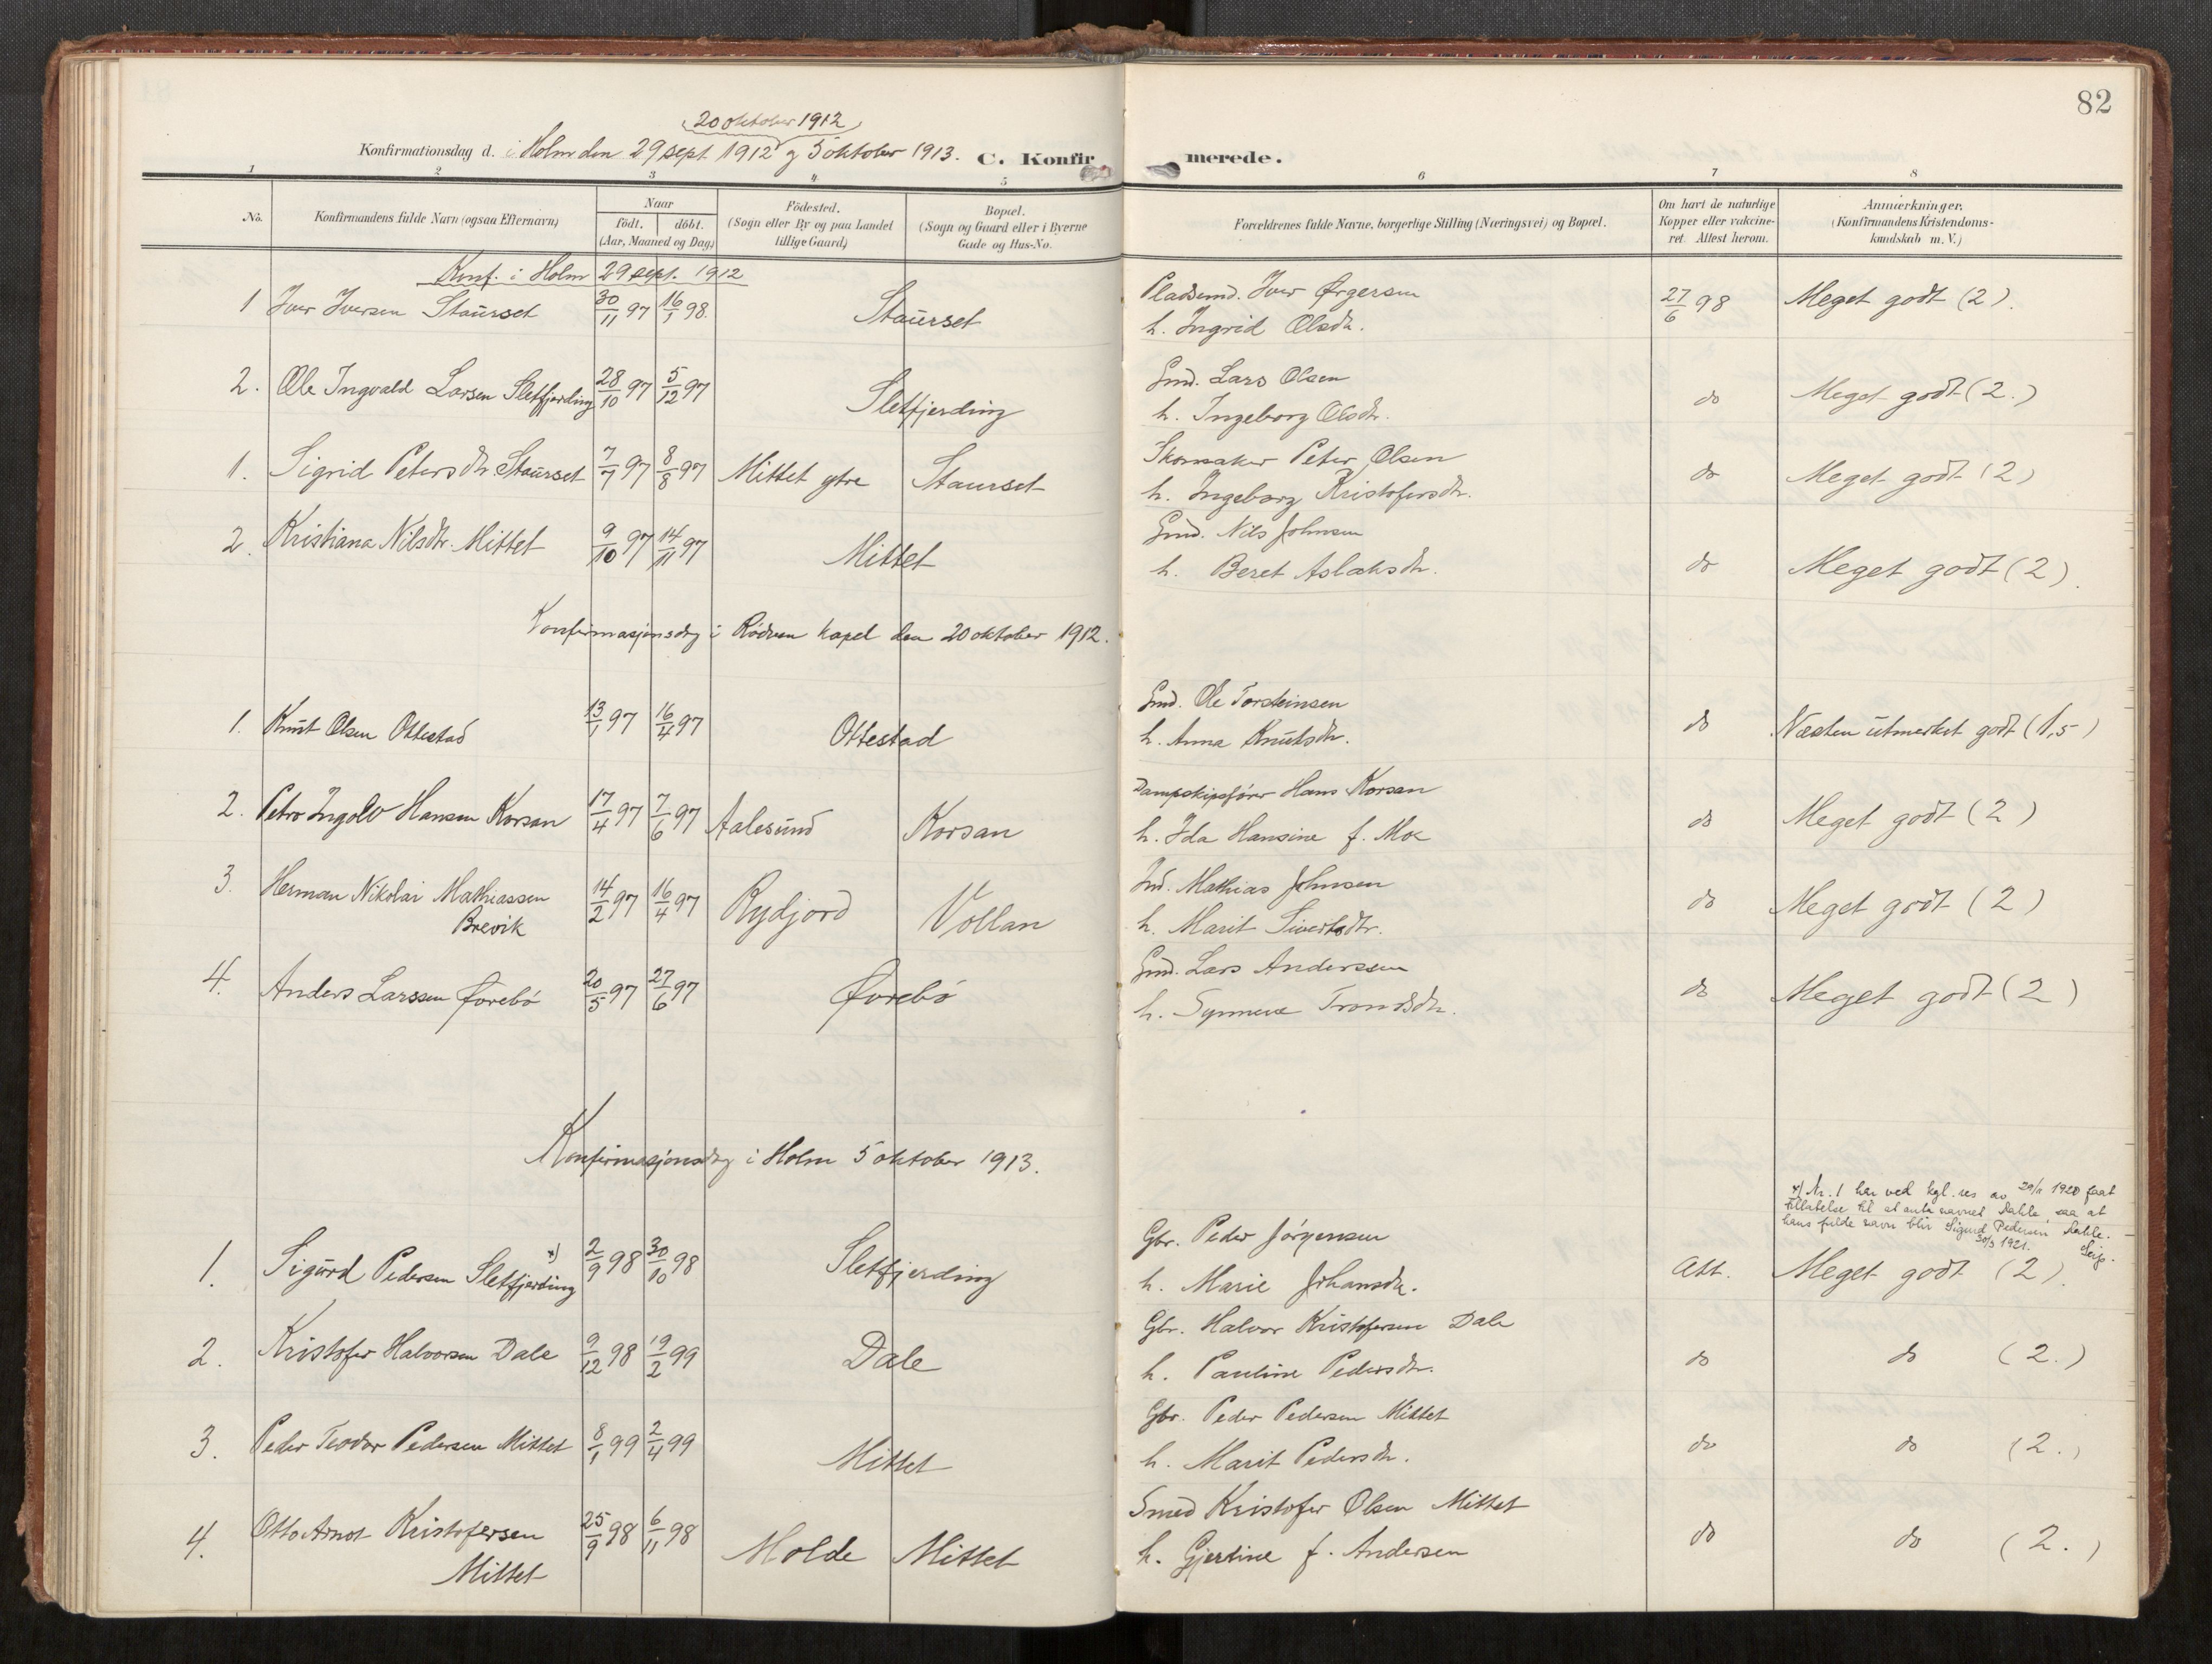 82
20 oktober 1912
Konfirmationsdag d. i Holm den 29 sept 1912 og 5 oktober 1913. C. Konfirmerede.
1 2 3 4 5 6 7 8
No. Konfirmandens fulde Navn (ogsaa Efternavn) Naar födt. döbt. (Aar, Maaned og Dag) Födested. (Sogn eller By og paa Landet tillige Gaard) Bopæl. (Sogn og Gaard eller i Byerne Gade og Hus-No. Forældrenes fulde Navne, borgerlige Stilling (Næringsvei) og Bopæl. Om havt de naturlige Kopper eller vakcineret. Attest herom. Anmærkninger. (Konfirmandens Kristendomskundskab m. V.)
Konf. i Holm 29 sept. 1912
1 Iver Iversen Staurset 30/11 97 16/1 98. Staurset Pladsmd. Iver Ørgersen 27/6 98 Meget godt (2).
h. Ingrid Olsdr.
2. Ole Ingvald Larsen Sletfjerding 28/10 97 5/12 97 Sletfjerding Gmd. Lars Olsen do Meget godt (2.)
h. Ingeborg Olsdr.
1. Sigrid Petersdtr Staurset 7/7 97 8/8 97 Mittet ytre Staurset Skomaker Peter Olsen do Meget godt (2)
h. Ingeborg Kristofersdr.
2. Kristiana Nilsdtr. Mittet 9/10 97 14/11 97 Mittet Gmd. Nils Johnsen do Meget godt (2).
h. Beret Aslaksdr.
Konfirmasjonsdag i Rödven kapel den 20 oktober 1912.
1. Knut Olsen Ottestad 13/1 97 16/4 97 Ottestad Gmd. Ole Torsteinsen do Næsten utmerket godt (1,5)
h. Anna Knutsdr.
2. Petro Ingolv Hansen Korsan 17/4 97 7/6 97 Aalesund Korsan Dampskipsfører Hans Korsan do Meget godt (2)
h. Ida Hansine f. Moe
3. Herman Nikolai Mathiassen 14/2 97 16/4 97 Rydjord Vollan Ind. Mathias Johnsen do Meget godt (2)
Brevik h. Marit Sivertsdtr.
4. Anders Larssen Øvrebö 20/5 97 27/6 97 Øvrebö Gmd. Lars Anderssen do Meget godt (2)
h. Synneve Trondsdr.
Konfirmasjonsdag i Holm 5 oktober 1913.
x) Nr. 1 har ved kgl. res av 1920 faat
tillatelse til at anta navnet Dahle, saa at
hans fulde navn blir Sigurd Pedersen Dahle.
30/3 1921. Seip.
1. Sigurd Pedersen Sletfjerding x) 2/9 98 30/10 98 Sletfjerding Gbr. Peder Jörgensen Att. Meget godt (2).
h. Marie Johansdr.
2. Kristofer Halvorsen Dale 9/12 98 19/2 99 Dale Gbr. Halvor Kristofersen Dale do do (2.)
h. Pauline Pedersdr.
3. Peder Teodor Pedersen Mittet 8/1 99 2/4 99 Mittet Gbr. Peder Pedersen Mittet do do (2.)
h. Marit Pedersdr.
4. Otto Arnot Kristofersen 25/9 98 6/11 98 Molde Mittet Smed Kristofer Olsen Mittet do do (2.)
Mittet h. Gjertine f. Andersen